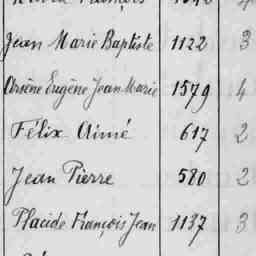 François 1042 4
Jean Marie Baptiste 1122 3
Arsène Eugène Jean Marie 1579 4
Félix Aimé 617 2
Jean Pierre 580 2
Placide François Jean 1137 3